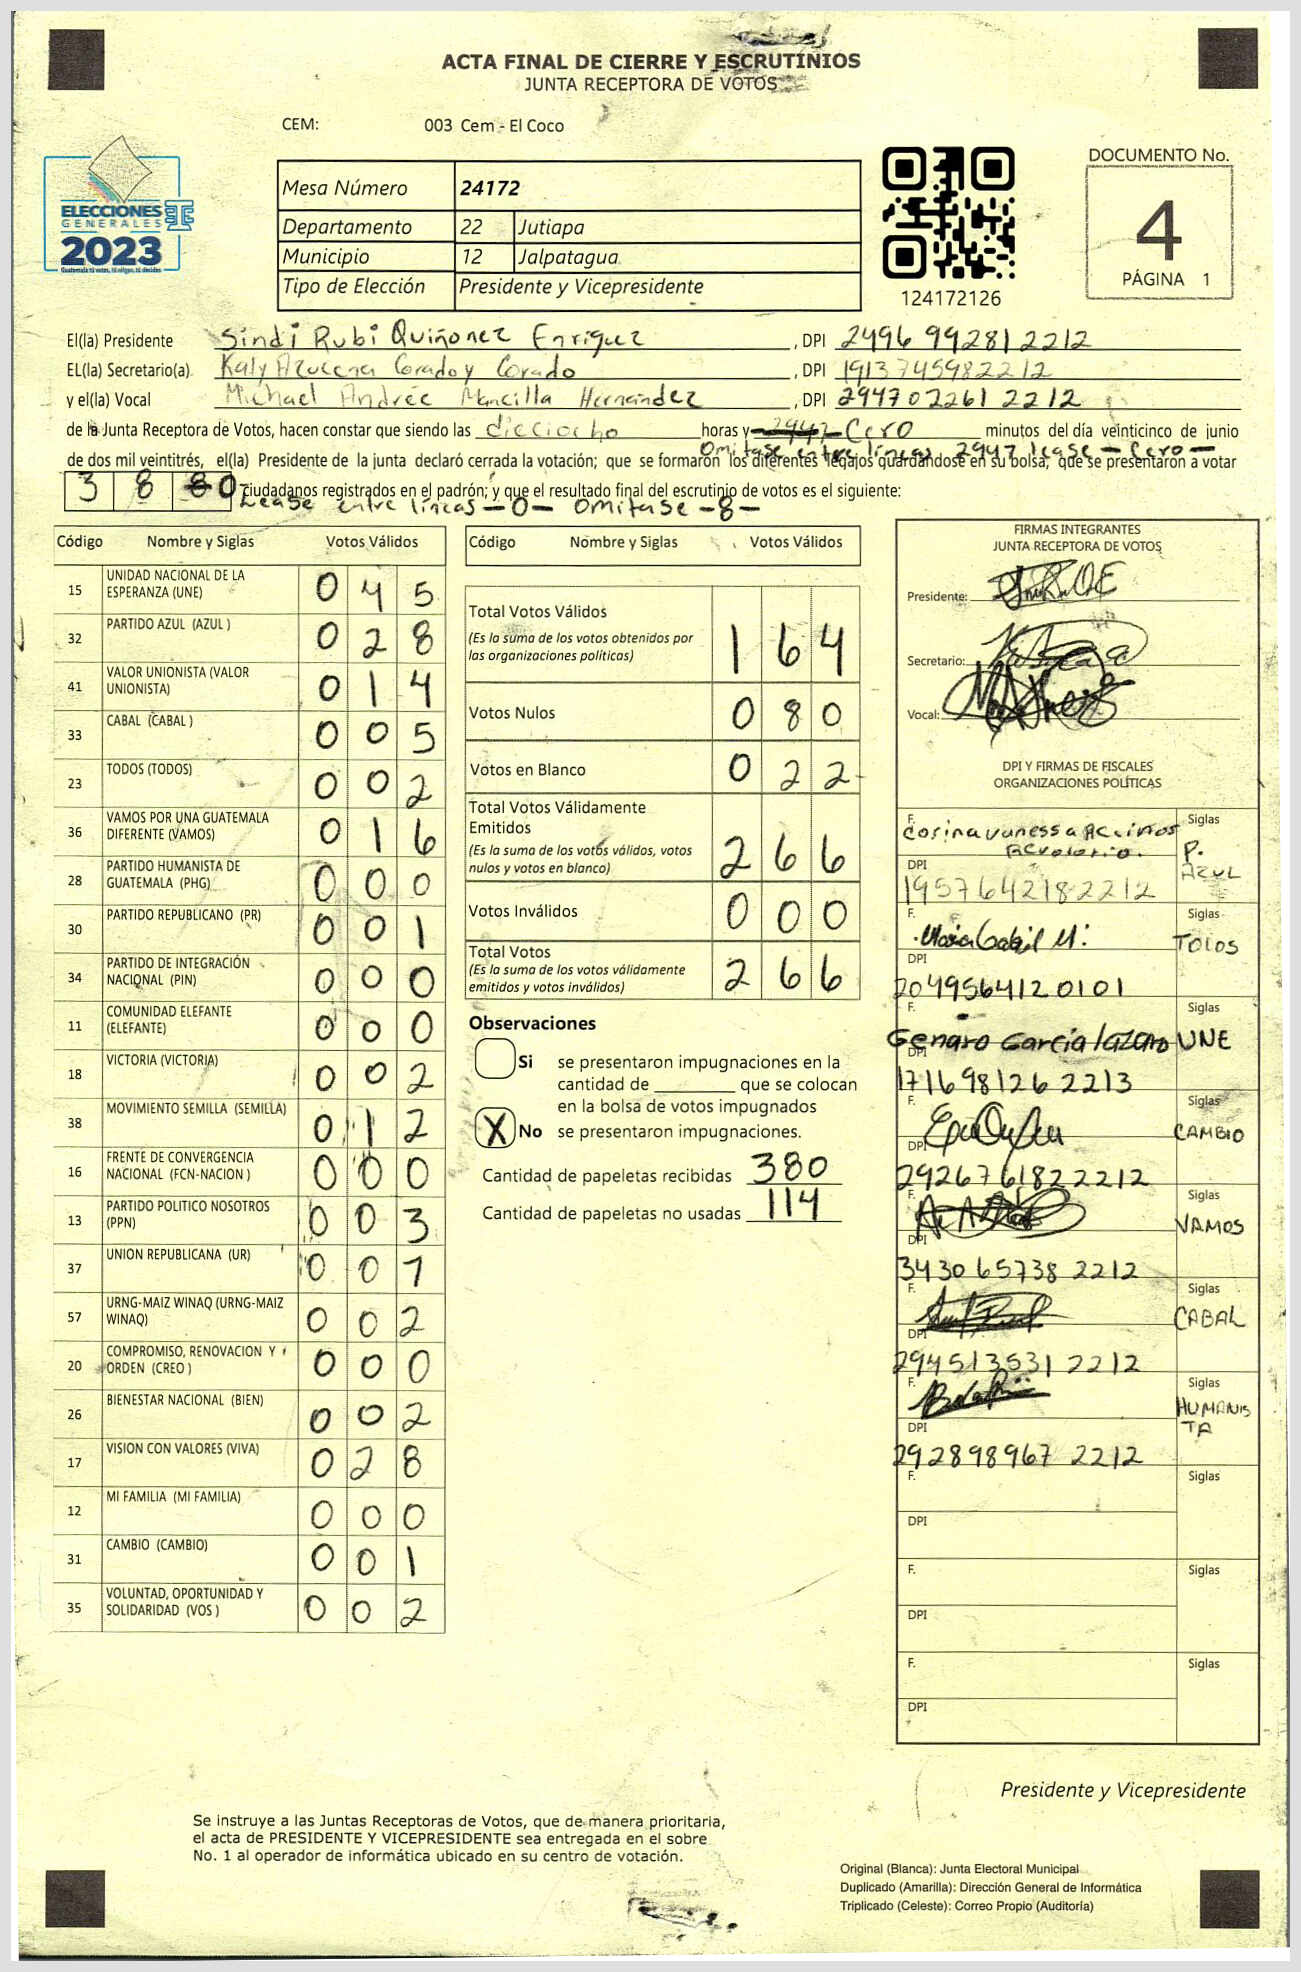 ACTA FINAL DE CIERRE Y ESCRUTINIOS
JUNTA RECEPTORA DE VOTOS
CEM: 003 Cem - El Coco
ELECCIONES
GENERALES
2023
Guatemala tú votas, tú eliges, tú decides
Mesa Número 24172
Departamento 22 Jutiapa
Municipio 12 Jalpatagua
Tipo de Elección Presidente y Vicepresidente
124172126
DOCUMENTO No.
4
PÁGINA 1
El(la) Presidente Sindi Rubi Quiñonez Enriquez, DPI 2496 99281 2212
EL(la) Secretario(a) Katy Azucena Corado y Corado, DPI 1913745982212
y el(la) Vocal Michael Andrée Mancilla Hernández, DPI 294702261 2212
de la Junta Receptora de Votos, hacen constar que siendo las dieciocho horas y 2947 Cero minutos del día veinticinco de junio
Omitase entre líneas 2947 lease - Cero -
de dos mil veintitrés, el(la) Presidente de la junta declaró cerrada la votación; que se formaron los diferentes legajos guardándose en su bolsa, que se presentaron a votar
3 8 8 0 ciudadanos registrados en el padrón; y que el resultado final del escrutinio de votos es el siguiente:
Lease entre líneas -0- Omitase -8-
Código Nombre y Siglas Votos Válidos
15 UNIDAD NACIONAL DE LA ESPERANZA (UNE) 0 4 5
32 PARTIDO AZUL (AZUL ) 0 2 8
41 VALOR UNIONISTA (VALOR UNIONISTA) 0 1 4
33 CABAL (CABAL ) 0 0 5
23 TODOS (TODOS) 0 0 2
36 VAMOS POR UNA GUATEMALA DIFERENTE (VAMOS) 0 1 6
28 PARTIDO HUMANISTA DE GUATEMALA (PHG) 0 0 0
30 PARTIDO REPUBLICANO (PR) 0 0 1
34 PARTIDO DE INTEGRACIÓN NACIONAL (PIN) 0 0 0
11 COMUNIDAD ELEFANTE (ELEFANTE) 0 0 0
18 VICTORIA (VICTORIA) 0 0 2
38 MOVIMIENTO SEMILLA (SEMILLA) 0 1 2
16 FRENTE DE CONVERGENCIA NACIONAL (FCN-NACION ) 0 0 0
13 PARTIDO POLITICO NOSOTROS (PPN) 0 0 3
37 UNION REPUBLICANA (UR) 0 0 1
57 URNG-MAIZ WINAQ (URNG-MAIZ WINAQ) 0 0 2
20 COMPROMISO, RENOVACION Y ORDEN (CREO ) 0 0 0
26 BIENESTAR NACIONAL (BIEN) 0 0 2
17 VISION CON VALORES (VIVA) 0 2 8
12 MI FAMILIA (MI FAMILIA) 0 0 0
31 CAMBIO (CAMBIO) 0 0 1
35 VOLUNTAD, OPORTUNIDAD Y SOLIDARIDAD (VOS ) 0 0 2
Código Nombre y Siglas Votos Válidos
Total Votos Válidos 1 6 4
(Es la suma de los votos obtenidos por
las organizaciones políticas)
Votos Nulos 0 8 0
Votos en Blanco 0 2 2
Total Votos Válidamente
Emitidos 2 6 6
(Es la suma de los votos válidos, votos
nulos y votos en blanco)
Votos Inválidos 0 0 0
Total Votos 2 6 6
(Es la suma de los votos válidamente
emitidos y votos inválidos)
Observaciones
Si se presentaron impugnaciones en la
cantidad de ________ que se colocan
en la bolsa de votos impugnados
X No se presentaron impugnaciones.
Cantidad de papeletas recibidas 380
Cantidad de papeletas no usadas 114
FIRMAS INTEGRANTES
JUNTA RECEPTORA DE VOTOS
Presidente:
Secretario:
Vocal:
DPI Y FIRMAS DE FISCALES
ORGANIZACIONES POLÍTICAS
F. Siglas
P. AZUL
DPI
1957642182212
F. Siglas
TODOS
DPI
2049564120101
F. Genaro García Lazaro Siglas
UNE
DPI
1716981262213
F. Siglas
CAMBIO
DPI
2926761822212
F. Siglas
VAMOS
DPI
3430657382212
F. Siglas
CABAL
DPI
2945135312212
F. Siglas
HUMANISTA
DPI
2928989672212
F. Siglas
DPI
F. Siglas
DPI
F. Siglas
DPI
Presidente y Vicepresidente
Se instruye a las Juntas Receptoras de Votos, que de manera prioritaria,
el acta de PRESIDENTE Y VICEPRESIDENTE sea entregada en el sobre
No. 1 al operador de informática ubicado en su centro de votación.
Original (Blanca): Junta Electoral Municipal
Duplicado (Amarilla): Dirección General de Informática
Triplicado (Celeste): Correo Propio (Auditoría)